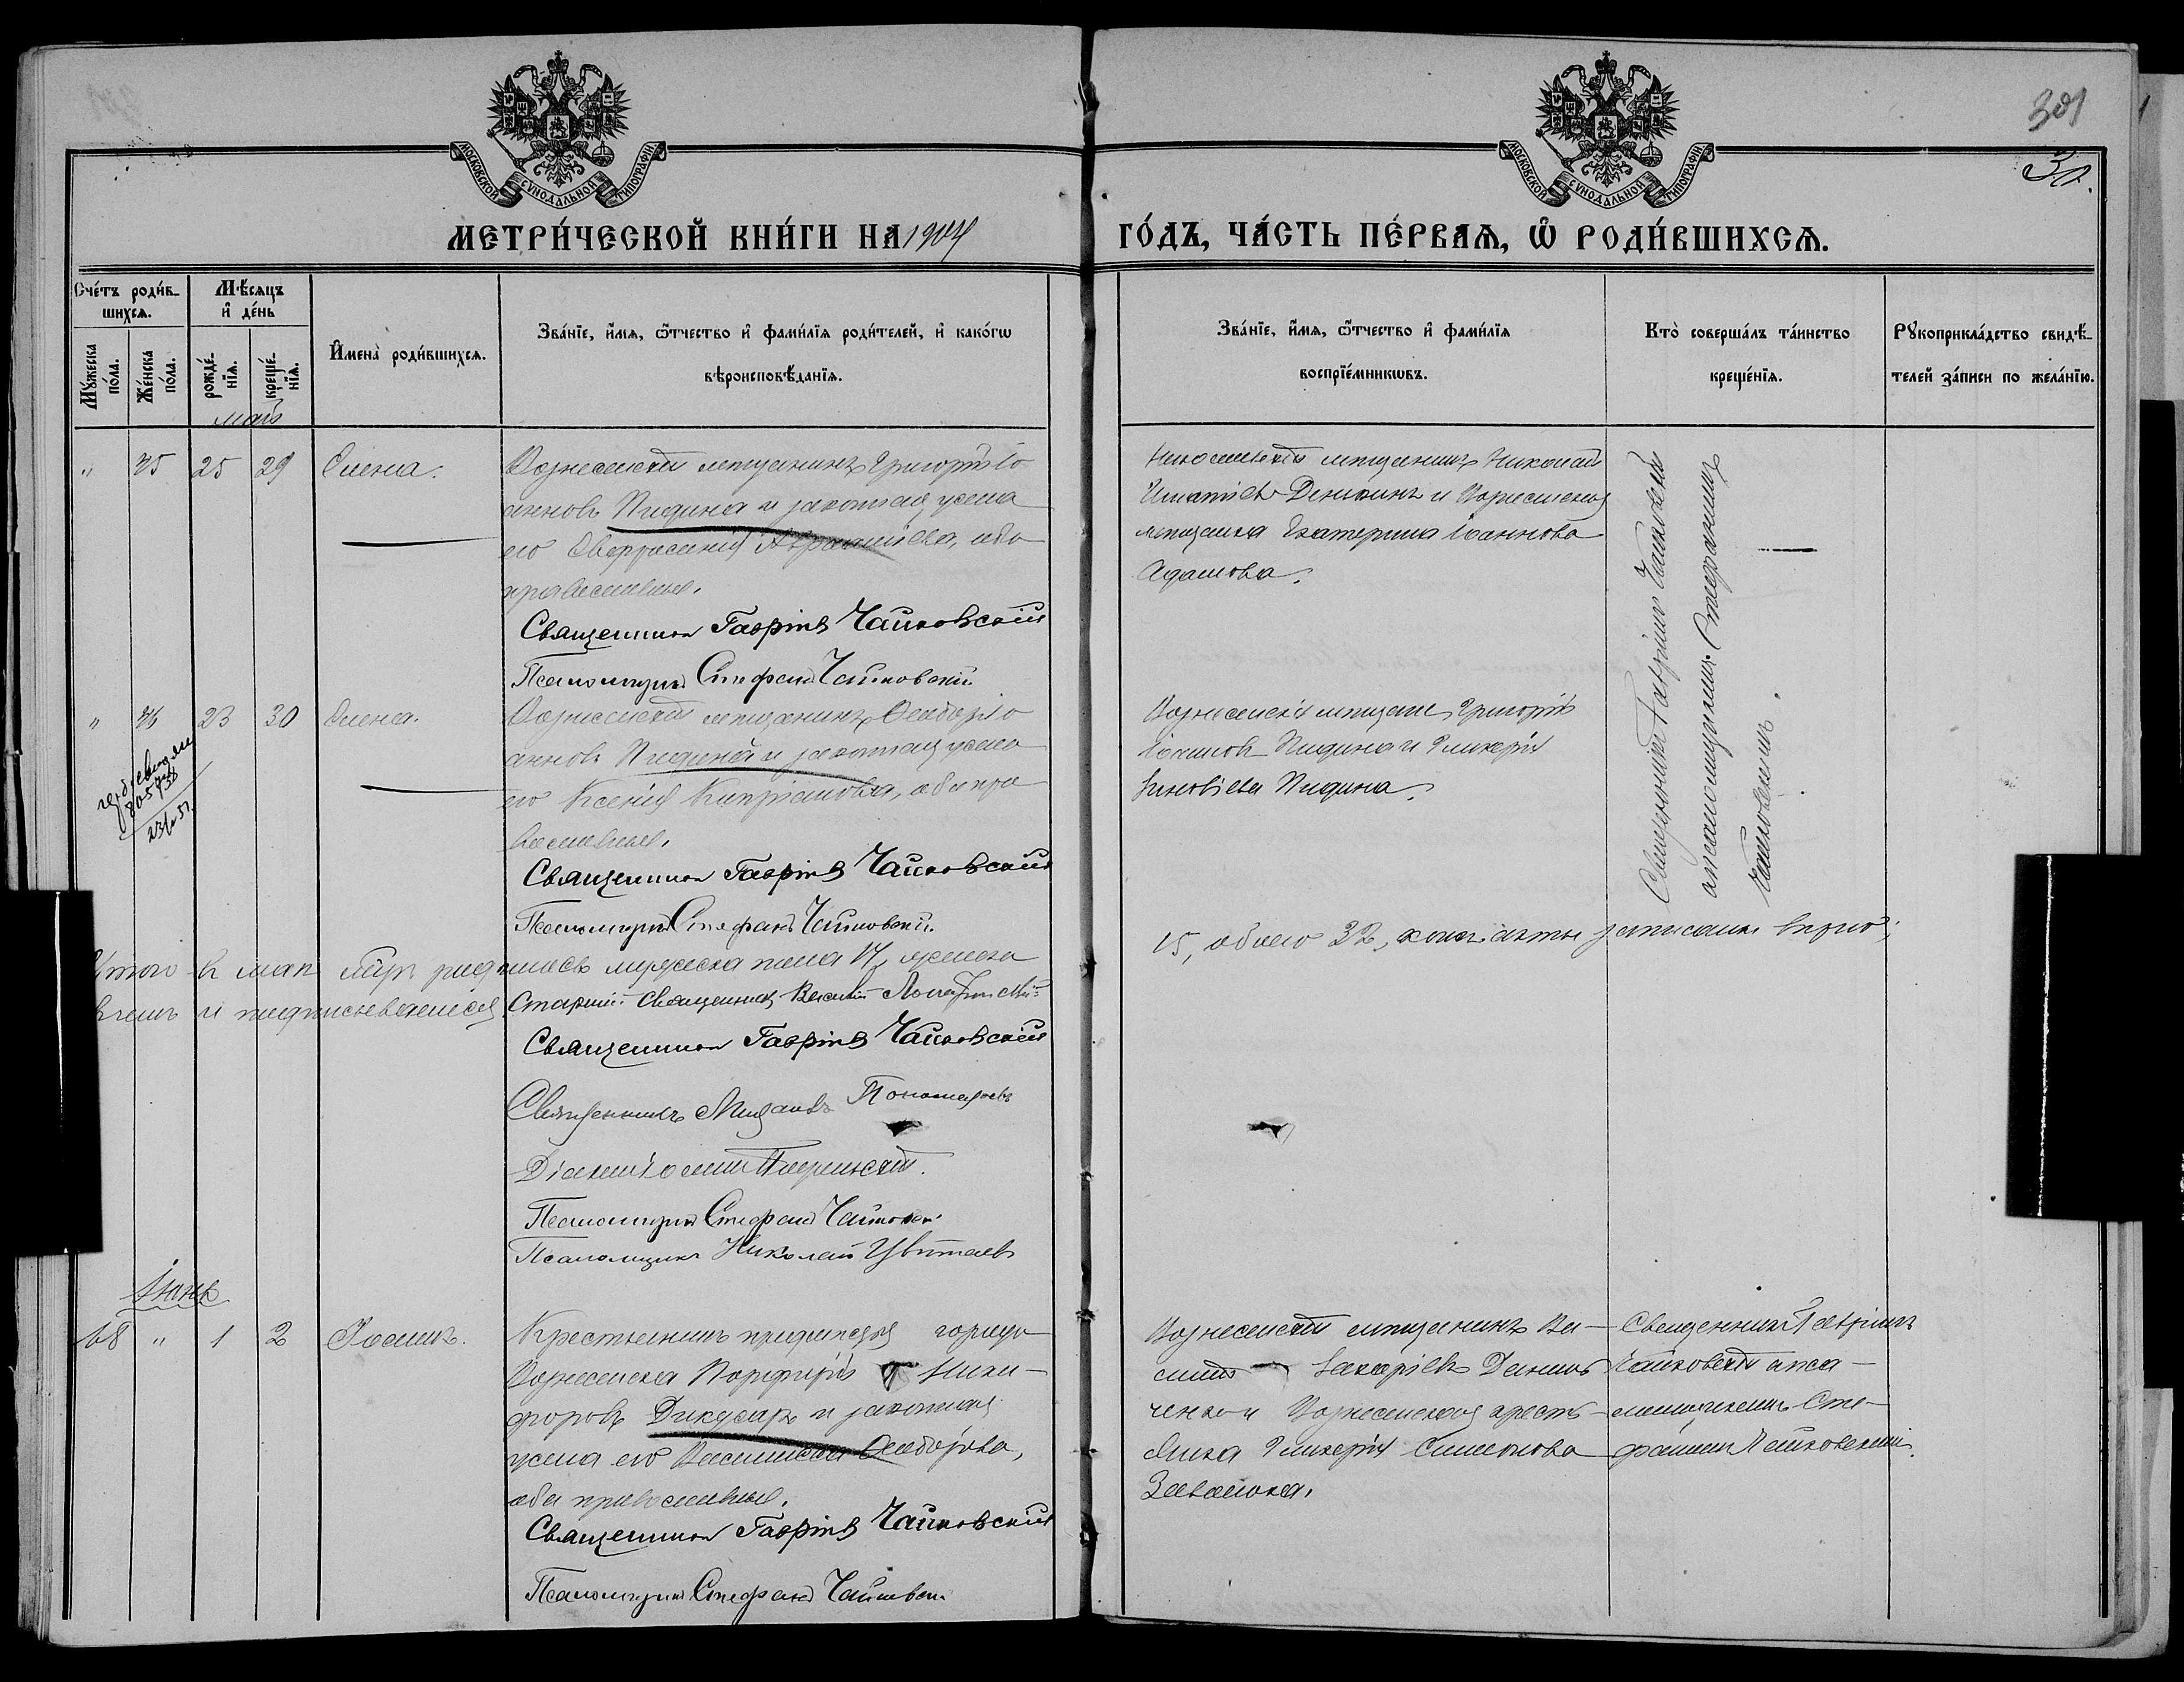 301
30.
МОСКОВСКОЙ СѴНОДАЛЬНОЙ ТИПОГРАФІИ
МОСКОВСКОЙ СѴНОДАЛЬНОЙ ТИПОГРАФІИ
МЕТРИ́ЧЕСКОЙ КНИ́ГИ НА 1904 ГО́ДЪ, ЧА́СТЬ ПЕ́РВАѦ, Ѡ҆ РОДИ́ВШИХСѦ.
Сче́тъ роди́в-
шихсѧ.
Мꙋ́жеска по́ла.
Же́нска по́ла.
Мѣ́сѧцъ
и҆ де́нь
рожде́-
нїѧ.
креще́-
нїѧ.
И҆мена̀ роди́вшихсѧ.
Зва́нїе, и҆́мѧ, ѻ҆́тчество и҆ фами́лїѧ роди́телей, и҆ како́гѡ
вѣроисповѣ́данїѧ.
Зва́нїе, и҆́мѧ, ѻ҆́тчество и҆ фами́лїѧ
воспрїе́мникѡвъ.
Кто̀ соверша́лъ та́инство
креще́нїѧ.
Рꙋкоприкла́дство свидѣ́-
телей за́писи по жела́нїю.
май
" 45 25 29 Елена.
Вознесенскій мѣщанинъ Григорій Іо
анновъ Пидина и законная жена
его Евфросинія Аврамиева, оба
православные.
Священник Гавріилъ Чайковскій
Псаломщикъ Стефанъ Чайковскій.
мѣщанинъ Николай
Игнатіевъ и Вознесенская
мѣщанка Екатерина Іоаннова
Адамова.
Священникъ Гавріилъ Чайковскій
съ псаломщикомъ Стефаномъ
Чайковскимъ.
" 46 23 30 Елена.
23/V 51.
Вознесенскій мѣщанинъ Ѳеодоръ Іо
анновъ Пидина и законная жена
его Ксенія Кипріанова, оба пра
вославные.
Священник Гавріилъ Чайковскій
Псаломщикъ Стефанъ Чайковскій.
Вознесенскіе мѣщане, Григорій
Іоанновъ Пидина и Гликерія
Зиновіева Пидина.
Итого въ маѣ м-цѣ родилось мужеска пола 17, женска
15, обоего 32, коихъ акты записаны вѣрно,
въ чемъ и подписываемся
Старшій Священникъ Василій
Священник Гавріилъ Чайковскій
Священникъ Михаилъ Пономаревъ
Діаконъ
Псаломщикъ Стефанъ Чайковскій
Псаломщикъ Николай Цвѣтаевъ
Іюнь
48 " 1 2 Іоаннъ.
Крестьянинъ города
Вознесенска Порфирій Ники-
форовъ Дикусаръ и законная
жена его Василисса Ѳеодорова,
оба православные.
Священник Гавріилъ Чайковскій
Псаломщикъ Стефанъ Чайковскій
Вознесенскій мѣщанинъ Ва-
силій Захаріевъ
ченко и Вознесенская кресть-
янка Гликерія Симеонова
Завалюка.
Священникъ Гавріилъ
Чайковскій съ пса-
ломщикомъ Сте-
фаномъ Чайковскимъ.